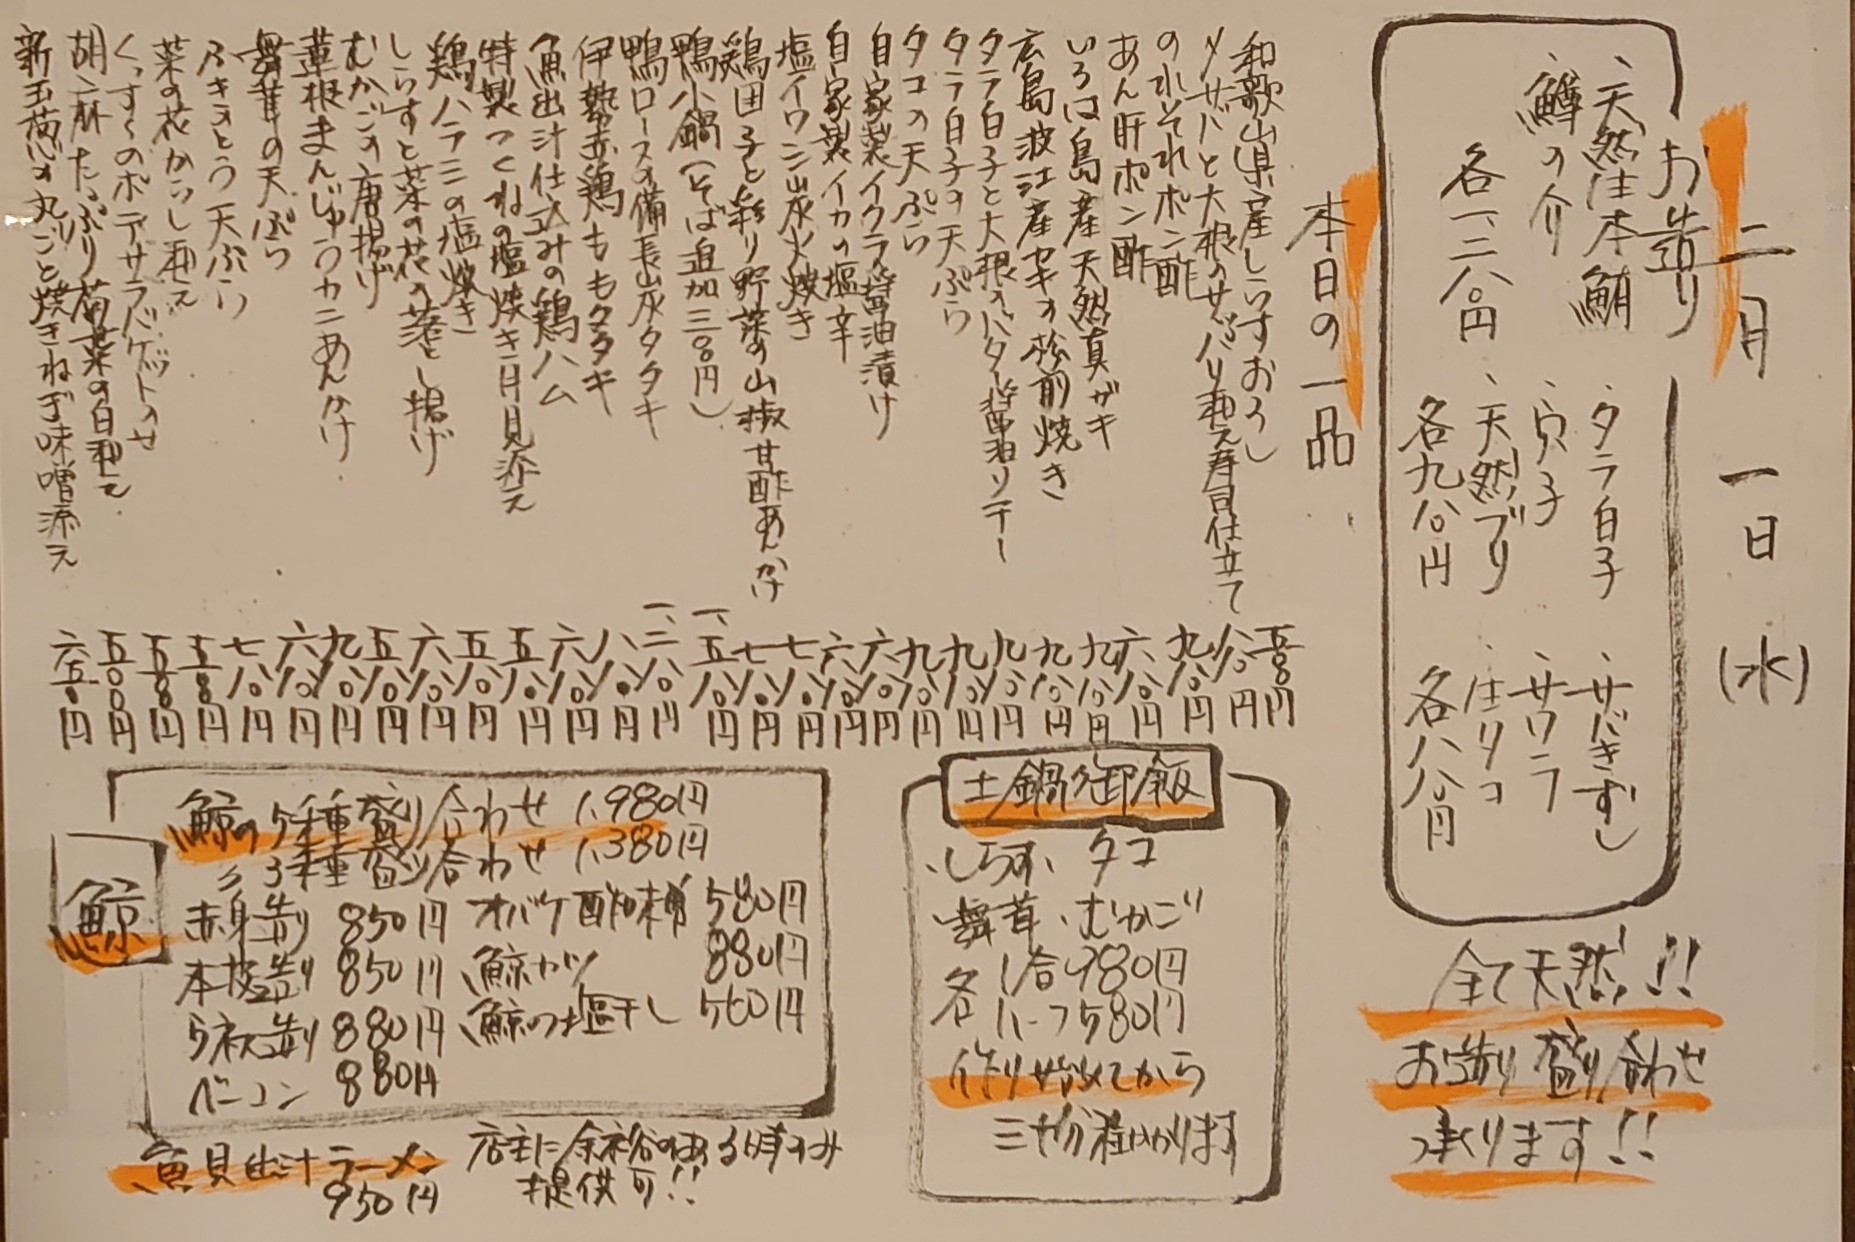 二月 一日 (水)
お造り
、天然生本鮪
、鱒の介
各一、二八〇円
、タラ白子
、穴子
、天然ブリ
各九八〇円
、サバきずし
、サワラ
、生タコ
各八八〇円
全て天然!!
お造り盛り合わせ
承ります!!
本日の一品
和歌山県産しらすおろし 五〇〇円
〆サバと大根のサッパリ和え寿司仕立て 八八〇円
のれそれポン酢 九八〇円
あん肝ポン酢 六八〇円
いろは島産天然真ガキ 九八〇円
広島波江産カキの松前焼き 九八〇円
タラ白子と大根のバター醤油ソテー 九八〇円
タラ白子の天ぷら 九八〇円
タコの天ぷら 九八〇円
自家製イクラ醤油漬け 六八〇円
自家製イカの塩辛 六八〇円
塩イワシ炭火焼き 七八〇円
鶏団子と彩り野菜の山椒甘酢あんかけ 七八〇円
鴨小鍋(そば追加三〇〇円) 一、五八〇円
鴨ロースの備長炭タタキ 一、二八〇円
伊勢赤鶏ももタタキ 八八〇円
魚出汁仕込みの鶏ハム 六八〇円
特製つくねの塩焼き 月見添え 五八〇円
鶏ハラミの塩焼き 五八〇円
しらすと菜の花の落とし揚げ 六八〇円
むかごの唐揚げ 五八〇円
蓮根まんじゅうカニあんかけ 九八〇円
舞茸の天ぷら 六八〇円
ふきのとう天ぷら 七八〇円
菜の花からし和え 五五〇円
くんすくのポテサラバゲットのせ 五五〇円
胡麻たっぷり菊菜の白和え 五〇〇円
新玉葱の丸ごと焼きねぎ味噌添え 六五〇円
土鍋御飯
、しらす、タコ
、舞茸、むかご
各 1合 980円
各 ハーフ 580円
作り始めてから
三十分程かかります
鯨
鯨の5種盛り合わせ 1,980円
〃 3種盛り合わせ 1,380円
赤身造り 850円
本皮造り 850円
うねす造り 880円
ベーコン 880円
オバケ酢味噌 580円
鯨カツ 880円
鯨の塩干し 560円
魚貝出汁ラーメン
950円
店主に余裕のある時のみ
提供可!!